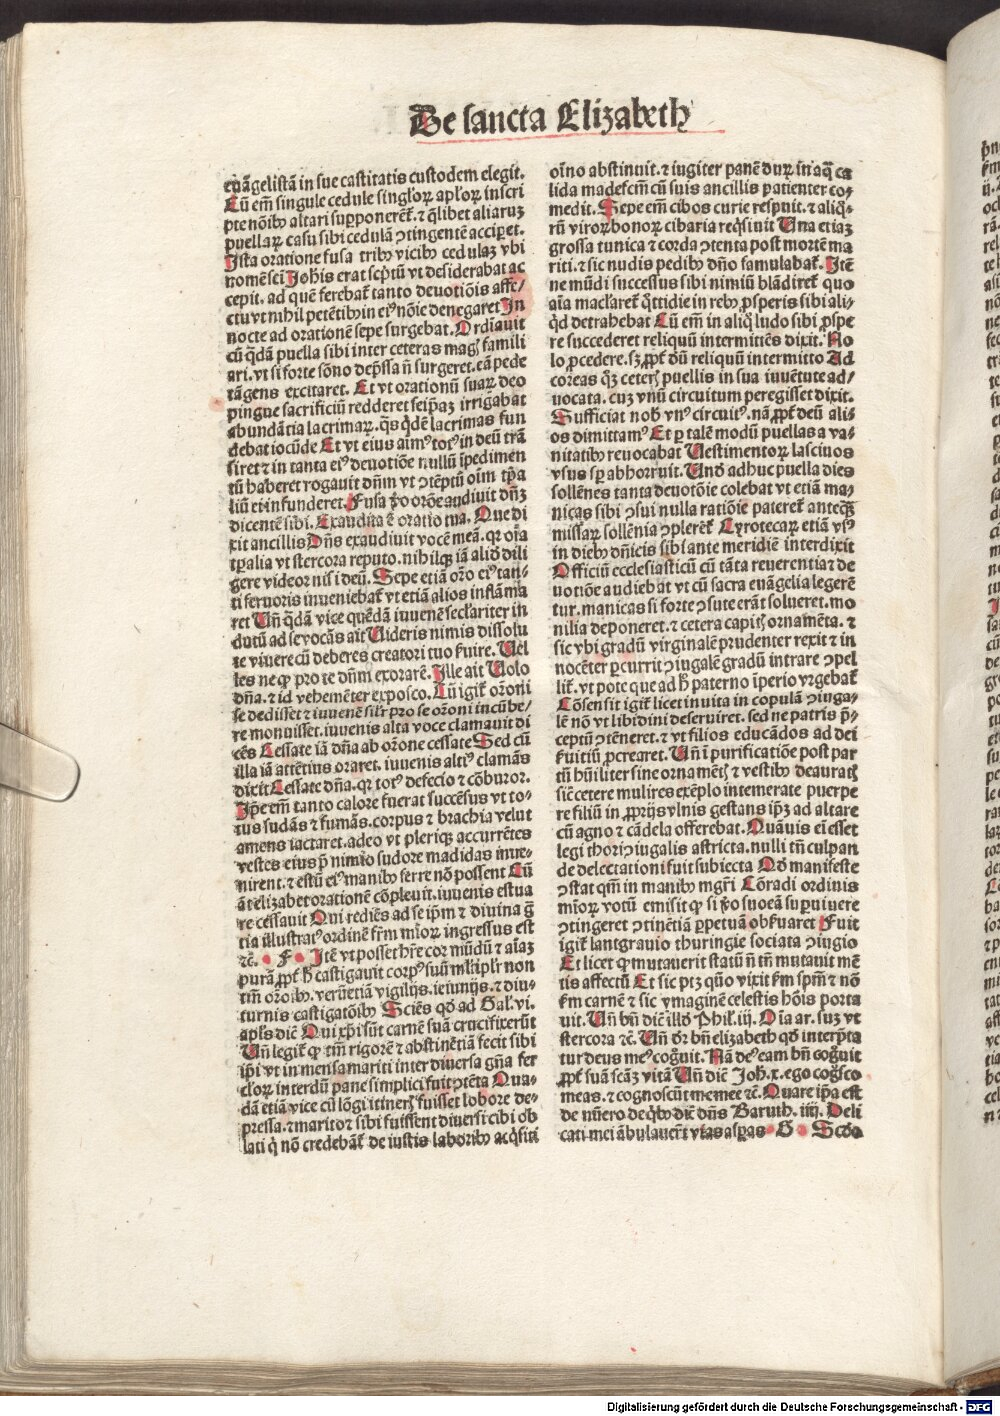 De sancta Elizabeth
euãgelistã in sue castitatis custodem elegit.
Cũ em̃ singule cedule singl'oꝝ apl'oꝝ inscri
pte nõibꝰ altari supponerẽt. ⁊ q̃libet aliarũ
puellaꝝ casu sibi cedulã ↄtingentẽ acciperet.
Ista oratione fusa tribꝰ vicibꝰ cedulaꝫ vbi
nomẽ sci Joh̃is erat sc̃ptũ vt desiderabat ac
cepit. ad quẽ ferebat̃ tanto deuotiõis affe/
ctu vt nihil petẽtibꝰ in eiꝰ nõie denegaret In
nocte ad orationẽ sepe surgebat. Ordĩauit
cũ q̃dã puella sibi inter ceteras mag̃ famili
ari. vt si forte sõno dep̃ssa ñ surgeret. eã pede
tãgens excitaret. Et vt orationũ suaꝝ deo
pingue sacrificiũ redderet seip̃aꝫ irrigabat
abundãtia lacrimaꝝ. q̃s q̃dẽ lacrimas fun
debat iocũde Et vt eius aĩmꝰ totꝰ in deũ trã
siret ⁊ in tanta eiꝰ deuotiõe nullũ ĩpedimen
tũ haberet rogauit dñm vt ↄtẽptũ oĩm tp̃a
liũ ei infunderet. Fusa ꝟo orõe audiuit dñꝫ
dicentẽ sibi. Exaudita ẽ oratio tua. Que di
xit ancillis Dñs exaudiuit vocẽ meã. qꝛ oĩa
tp̃alia vt stercora reputo. nihilqꝫ iã aliđ dili
gere videor nisi deũ. Sepe etiã orõ eiꝰ tan-
ti feruoris inueniebat̃ vt etiã alios inflãma
ret Uñ q̃dã vice quẽdã iuuenẽ seclariter in
dutũ ad se vocãs ait Uideris nimis dissolu
te viuere cũ deberes creatori tuo ẜuire. Uel
les ne ꝙ pro te dñm exorarẽ. Ille ait Uolo
dña. ⁊ id vehemẽter exposco. Cũ igit̃ orõni
se dedisset ⁊ iuuenẽ sil'r pro se orõni incũbe/
re monuisset. iuuenis alta voce clamauit di
cẽs Cessate iã dña ab orõne cessate Sed cũ
illa iã attẽtius oraret. iuuenis altiꝰ clamãs
dixit Cessate dña. qꝛ totꝰ deficio ⁊ cõburor.
Ip̃e em̃ tanto calore fuerat succẽsus vt to-
tus sudãs ⁊ fumãs. corpus ⁊ brachia velut
amens iactaret. adeo vt pleriqꝫ accurrẽtes
vestes eius p̃ nimio sudore madidas inue-
nirent. ⁊ estũ eiꝰ manibꝰ ferre nõ possent Cũ
aũt elizabet orationẽ cõpleuit. iuuenis estua
re cessauit Qui rediẽs ad se ip̃m ⁊ diuina g̃
tia illustratꝰ ordinẽ fr̃m mĩoꝝ ingressus est
⁊c̃. F. Itẽ vt posset hr̃e cor mũdũ ⁊ aĩaꝫ
purã. ꝓpt̃ h̃ castigauit corpꝰ suũ ml'tipl'r non
tm̃ orõibꝰ. verũetiã vigilijs. ieiunijs. ⁊ diu-
turnis castigatõibꝰ Sciẽs qđ ad Gal'. vi.
apl's diẽ Qui xp̃i sũt carnẽ suã crucifixerũt
Uñ legit̃ ꝙ tm̃ rigorẽ ⁊ abstinẽtiã fecit sibi
ip̃i vt in mensa mariti inter diuersa gña fer
cl'oꝝ interdũ pane simplici fuit ↄtẽta Qua-
dã etiã vice cũ lõgi itiner̃ fuisset lobore de-
pressa. ⁊ marito ⁊ sibi fuissent diuersi cibi ob
lati q̃ nõ credebãt̃ de iustis laboribꝰ acq̃siti
oĩno abstinuit. ⁊ iugiter panẽ duꝝ in aq̃ ca
lida madefcm̃ cũ suis ancillis patienter co-
medit. Sepe em̃ cibos curie respuit. ⁊ aliq̃-
rũ viroꝝ bonoꝝ cibaria req̃siuit Una etiaꝫ
grossa tunica ⁊ corda ↄtenta post mortẽ ma
riti. ⁊ sic nudis pedibꝰ dño famulabat̃. Itẽ
ne mũdi successus sibi nimiũ blãdiret̃ quo
aĩa macl'aret̃ q̃ttidie in rebꝰ ꝓsperis sibi ali-
q̃d detrahebat Cũ em̃ in aliq̃ ludo sibi ꝓspe
re succederet reliquũ intermittẽs dixit. No
lo ꝓcedere. sꝫ ꝓpt̃ dñ reliquũ intermitto Ad
coreas q̃ꝫ ceter̃ puellis in sua iuuẽtute ad/
uocata. cuꝫ vnũ circuitum peregisset dixit.
Sufficiat nob̃ vnꝰ circuitꝰ. nã ꝓpt̃ deũ ali-
os dimittamꝰ Et ꝑ talẽ modũ puellas a va-
nitatibꝰ reuocabat Uestimentoꝝ lasciuos
vsus sp̃ abhorruit. Unđ adhuc puella dies
sollẽnes tanta deuotõie colebat vt etiã ma-
nicas sibi ↄsui nulla ratiõie pateret̃ anteq̃ꝫ
missaꝝ sollẽnia ↄplerẽt̃ Cyrotecaꝝ etiã vsꝰ
in diebꝰ dñicis sibi ante meridiẽ interdixit
Officiũ ecclesiasticũ cũ tãta reuerentia ⁊ de
uotiõe audiebat vt cũ sacra euãgelia legerẽ
tur. manicas si forte ↄsute erãt solueret. mo
nilia deponeret. ⁊ cetera capit̃ ornamẽta. ⁊
sic vbi gradũ virginalẽ prudenter rexit ⁊ in
nocẽter ꝑcurrit ↄiugalẽ gradũ intrare ↄpel
lit̃. vt pote que ad h̃ paterno ĩperio vrgebat̃
Cõsensit igit̃ licet inuita in copulã ↄiuga-
lẽ nõ vt libidini deseruiret. sed ne patris p̃-
ceptũ ↄtẽneret. ⁊ vt filios educãdos ad dei
ẜuitiũ ꝓcrearet. Uñ ĩ purificatiõe post par
tũ hũiliter sine ornamẽt̃ ⁊ vestibꝰ deaurat̃
sic̃ cetere mulires exẽplo intemerate puerpe
re filiũ in ꝓprijs vlnis gestans ip̃ꝫ ad altare
cũ agno ⁊ cãdela offerebat. Quãuis ei esset
legi thori ↄiugalis astricta. nulli tñ culpan
de delectationi fuit subiecta Qđ manifeste
ↄstat qm̃ in manibꝰ mgr̃i Cõradi ordinis
mĩoꝝ votũ emisit ꝙ si ꝟo suo eã supuiuere
ↄtingeret ↄtinẽtiã ꝑpetuã obẜuaret Fuit
igit̃ lantgrauio thuringie sociata ↄiugio
Et licet ꝙ mutauerit statũ ñ tñ mutauit mẽ
tis affectũ Et sic ptꝫ quõ vixit ẜm spm̃ ⁊ nõ
ẜm carnẽ ⁊ sic ymaginẽ celestis hõis porta
uit. Uñ bñ diẽ illđ Phil'. iij. Oĩa ar. suꝫ vt
stercora ⁊c̃. Uñ đr bñ elizabeth qđ interp̃ta
tur deus meꝰ cog̃uit. Nã deꝰ eam bñ cog̃uit
ꝓpt̃ suã scãꝫ vitã Uñ diẽ Joh̃. x. ego cog̃sco
meas. ⁊ cognoscũt me mee ⁊c̃. Quare ip̃a est
de nũero de q̃bꝰ diẽ dñs Baruth. iiij. Deli
cati mei ãbulauer̃t vias aspas G Scđo
Digitalisierung gefördert durch die Deutsche Forschungsgemeinschaft - DFG